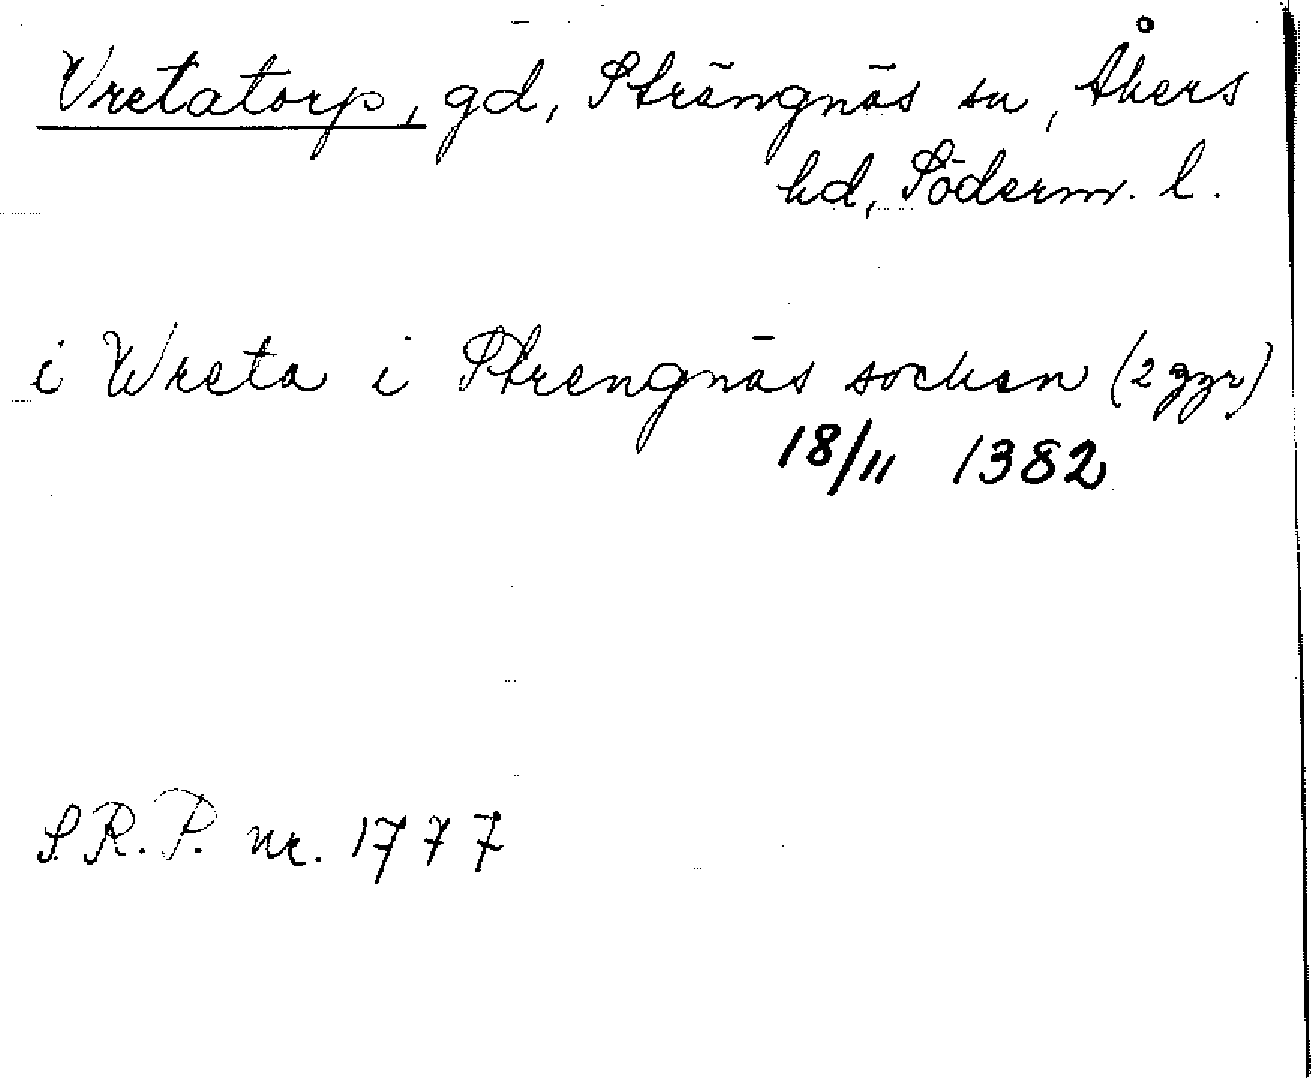 Vretatorp, gd, Strängnäs sn, Åkers
hd, Söderm. l.
i Wreta i Strengnäs socken (2 ggr)
18/11 1382
S.R.P. nr. 1777